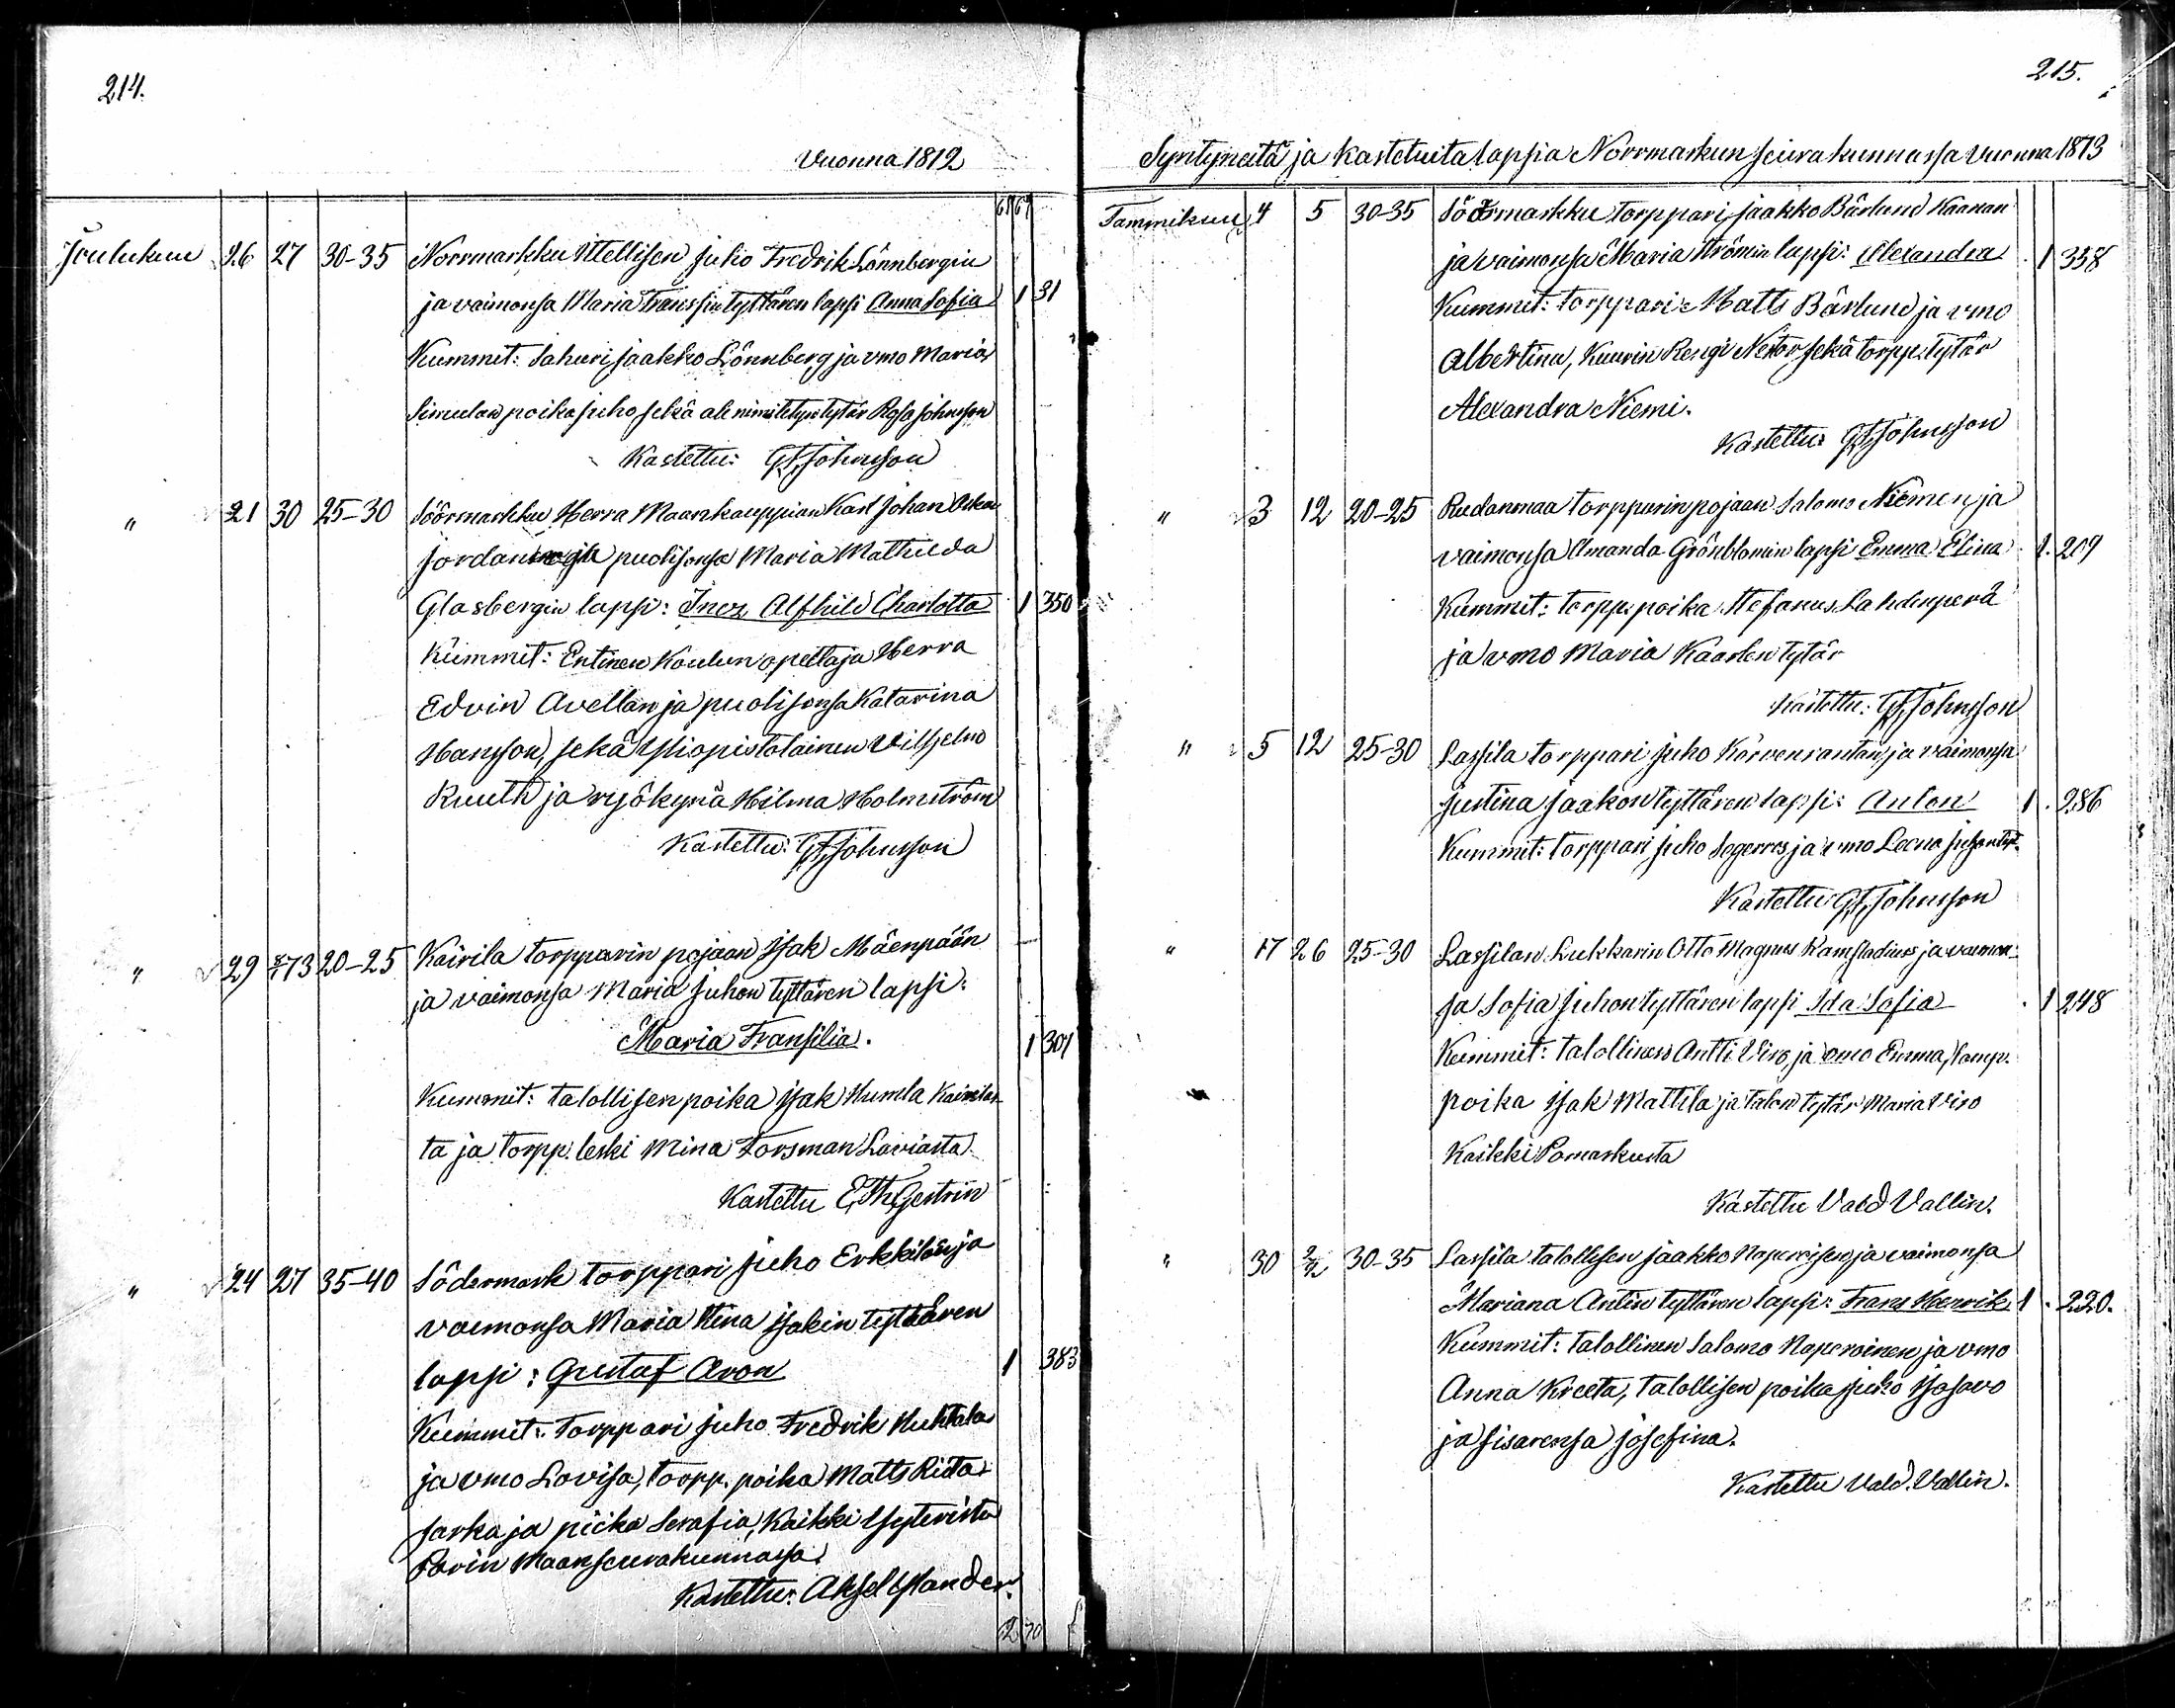 214.
Vuonna 1872
61 67
Joulukuu 26 27 30-35 Norrmarkku Itellisen Juho Fredrik Lönnbergin
ja vaimonsa Maria Franssin tyttären lapsi Anna Sofia 1 31
Kummit: Sahuri Jaakko Lönnberg ja vmo Maria
Simulan poika Juho sekä alinimitetyn tytär Rosa Johnsson
Kastettu: G.F. Johnsson
" 21 30 25-30 Söörmarkku Herra Maankauppian Karl Johan Oskar
Jordanin ja puolisonsa Maria Mathilda
Glasbergin lapsi: Inez Alfhild Charlotta 1 350
Kummit: Entinen Koulun opettaja Herra
Edvin Avellan ja puolisonsa Katarina
Hansson, sekä Yliopistolainen Vilhelmo
Ruuth ja ryökynä Hilma Holmström
Kastettu: G.F. Johnsson
" 29 73 20-25 Kairila torpparin pojaan Isak Mäenpään
ja vaimonsa Maria Juhon tyttären lapsi:
Maria Fransilia. 1 307
Kummit: talollisen poika Isak Humla Kairilas-
ta ja torpp. leski Mina Forsman Laviasta
Kastettu E. Th. Gestrin
" 24 27 35-40 Södermark torppari Juho Erkkilän ja
vaimonsa Maria Stina Isakin tyttären
lapsi: Gustaf Aron 1 383
Kummit: Torppari Juho Fredrik Huhtala
ja vmo Lovisa, torpp. poika Matts Rieta-
sarka ja piika Serafia, Kaikki Yyteristä
Porin Maanseurakunnassa.
Kastettu: Aksel Ylander.
2 70
215.
Syntyneitä ja kastetuita lapsia Norrmarkun seurakunnassa vuonna 1873
Tammikuu 4 5 30-35 Söörmarkku torppari Jaakko Bärlund Kaanan
ja vaimonsa Maria Strömin lapsi: Alexandra 1 358
Kummit: torppari Matts Bärlund ja vmo
Albertina, Kuurin Rengi Nestor sekä torpp. tytär
Alexandra Niemi.
Kastettu: G.F. Johnsson
" 3 12 20-25 Rudanmaa torpparin pojaan Salomo Niemen ja
vaimonsa Amanda Grönblomin lapsi Emma Elina 1. 209
Kummit: torpp. poika Stefanus Lahdenperä
ja vmo Maria Kaarlen tytär
Kastettu: G.F. Johnsson
" 5 12 25-30 Lassila torppari Juho Korvenrantan ja vaimonsa
Justina Jaakon tyttären lapsi: Anton 1. 286
Kummit: torppari Juho Segerros ja vmo Leena Juhontyt.
Kastettu G.F. Johnsson
" 17 26 25-30 Lassilan Lukkarin Otto Magnus Ramstadius ja vaimon-
sa Sofia Juhon tyttären lapsi Ida Sofia 1 248
Kummit: talollinen Antti Viro, ja vmo Emma, lamp.
poika Isak Mattila ja talon tytär Maria Viro
Kaikki Pomarkusta
Kastettu Vald Vallin.
" 30 2/2 30-35 Lassila talollisen Jaakko Naperoisen ja vaimonsa
Mariana Antin tyttären lapsi: Frans Henrik 1. 220.
Kummit: talollinen Salomo Naperoinen ja vmo
Anna Kreeta, talollisen poika Juho Isosavo
ja sisarensa Josefina.
Kastettu Vald. Vallin.